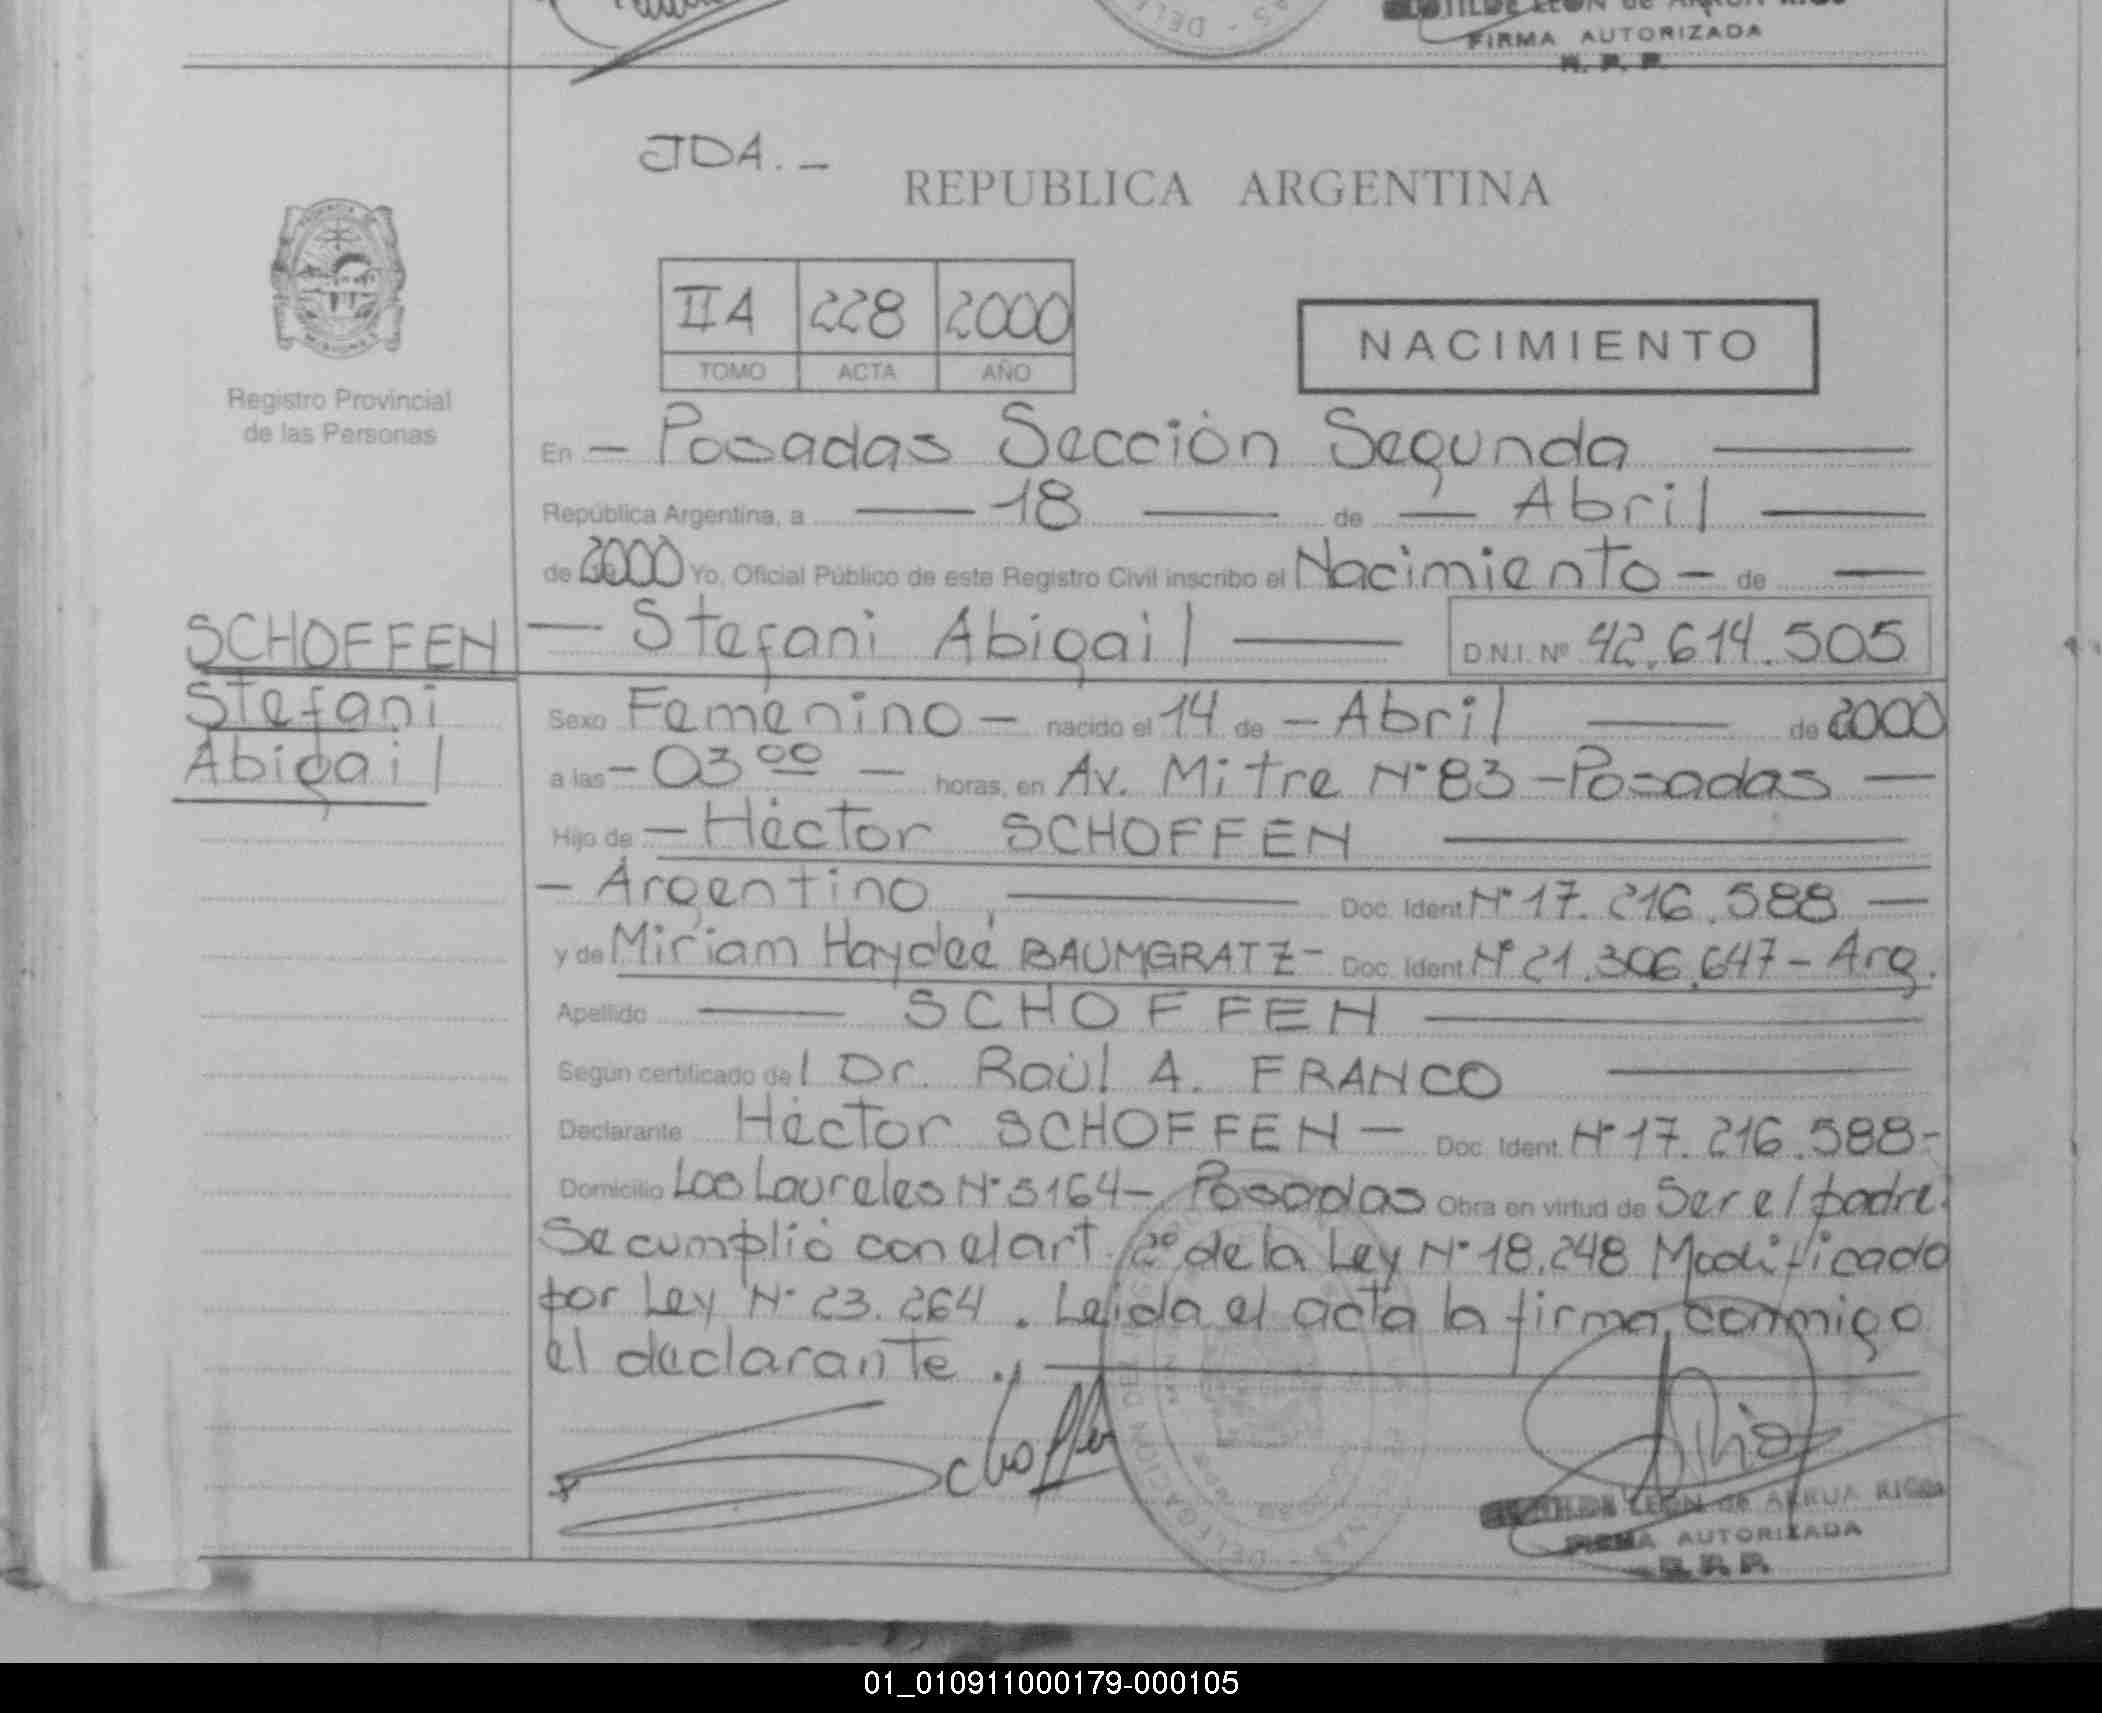 CLOTILDE LEON de ARRUA RIOS
FIRMA AUTORIZADA
R. P. P.
JDA. _
REPUBLICA ARGENTINA
IIA 228 2000
TOMO ACTA AÑO
NACIMIENTO
Registro Provincial
de las Personas
En — Posadas Sección Segunda —
República Argentina, a — 18 — de — Abril —
de 2000 Yo, Oficial Público de este Registro Civil inscribo el Nacimiento — de —
— Stefani Abigail — D.N.I. Nº 42.614.505
SCHOFFEN
Stefani
Abigail
Sexo Femenino — nacido el 14 de — Abril — de 2000
a las — 03 00 — horas, en Av. Mitre Nº 83 — Posadas —
Hijo de — Héctor SCHOFFEN —
— Argentino, — Doc. Ident. Nº 17.216.588 —
y de Miriam Haydeé BAUMGRATZ — Doc. Ident. Nº 21.306.647 — Arg.
Apellido — SCHOFFEN —
Según certificado de l Dr. Raúl A. FRANCO —
Declarante Héctor SCHOFFEN — Doc. Ident. Nº 17.216.588 -
Domicilio Los Laureles Nº 5164 — Posadas Obra en virtud de Ser el padre.
Se cumplió con el art. 2º de la Ley Nº 18.248 Modificado
por Ley Nº 23.264. Leída el acta la firma conmigo
el declarante ., —
Schoffen
CLOTILDE LEON de ARRUA RIOS
FIRMA AUTORIZADA
R. P. P.
01_010911000179-000105